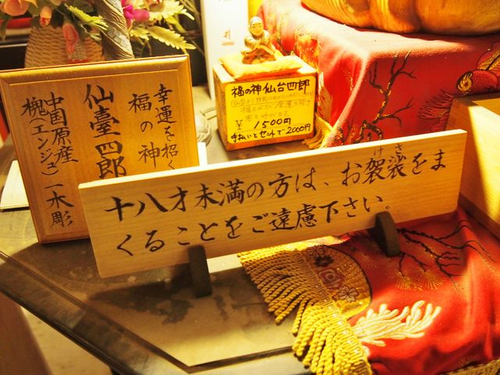 幸運を招く
福の神
仙臺四郎
中国原産
槐エンジュ一木彫
福の神仙台四郎
¥1500円
手ぬいとセットで2000円
十八才未満の方は、お袈裟をま
けさ
くることをご遠慮下さい。